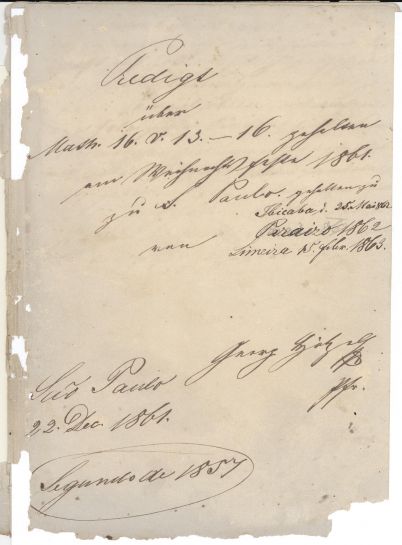 Predigt
über
Matth. 16. v. 13. – 16. gehalten
am Weihnachtsfeste 1861.
zu S. Paulo. gehalten zu
Ibicaba d. 25. Mai 1862
1862
von Limeira 15. Febr. 1863.
Georg
São Paulo Pfr.
22. Dec. 1861.
Segundo de 1857